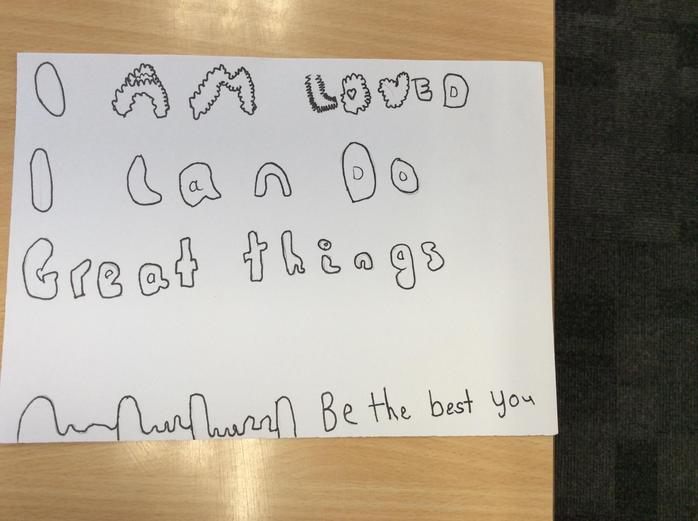 I AM LOVED
I Can Do
Great things
Be the best you